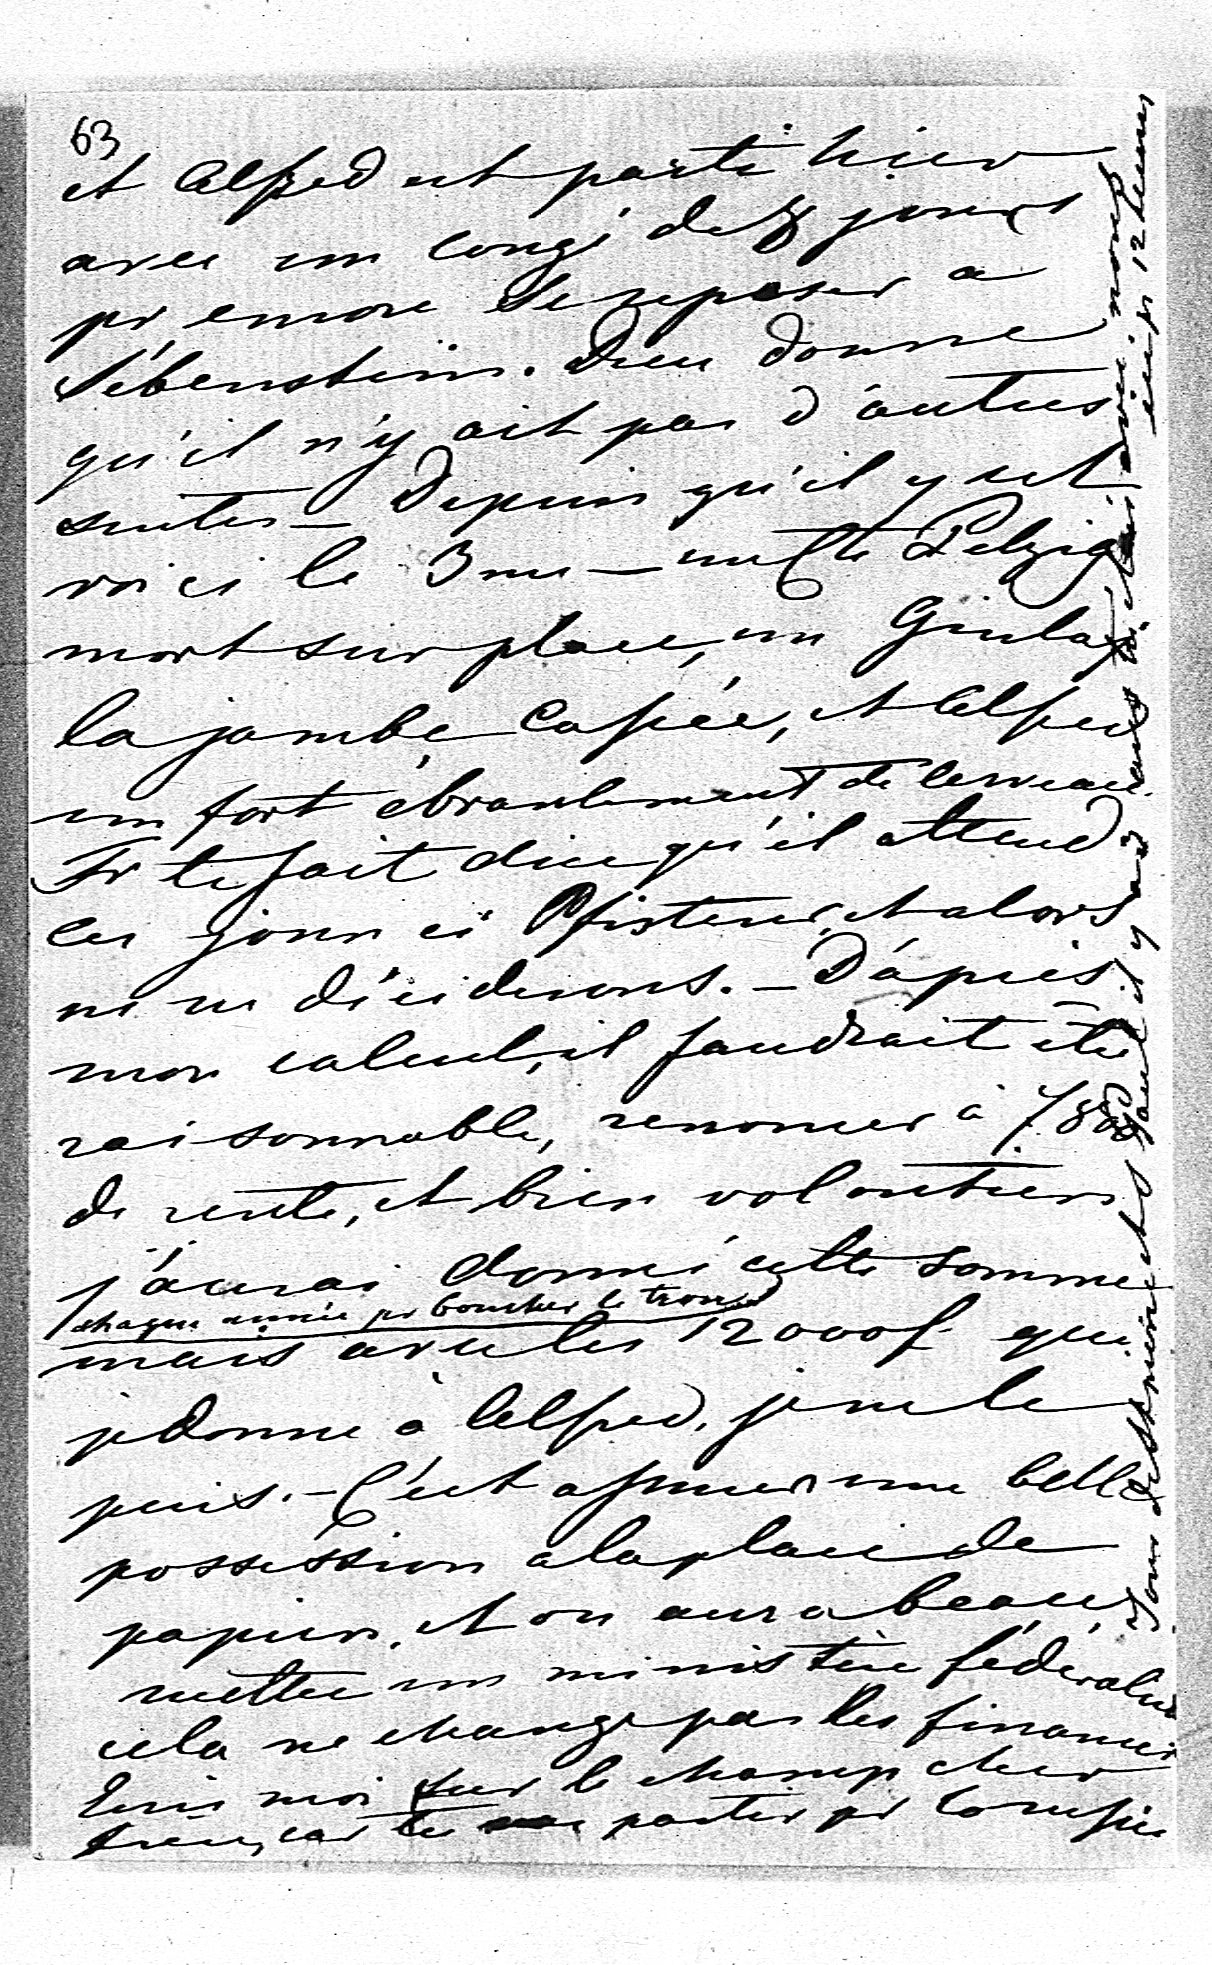 63
et Alfred est parti hier
avec un congé de 8 jours
pr encore se reposer à
Sébenstein. Dieu donne
qu'il n'y ait pas d'autres
suites – Depuis qu'il y est
voici le 3me – un Cte Pelzig
mort sur place, un Giulaÿ
la jambe cassée, et Alfred
un fort ébranlement de cerveau.
Fr te fait dire qu'il attend
ces jours ci Pfisterer, et alors
ns ns déciderons. – D'après
mon calcul, il faudrait être
raisonnable, renoncer à f. 8000
de rente, et bien volontiers
j'aurai donné cette somme
chaque année pr boucher le trou
mais avec les 12000 f. que
je donne à Alfred, je ne le
puis. – C'est assurer une belle
possession à la place de
papiers, et on aura beau
mettre un ministère fédéraliste
cela ne change pas les finances
Ecris moi sur le champ cher
frère, car tu partir pr
et il y a
avec nous
ici pr 12 heures